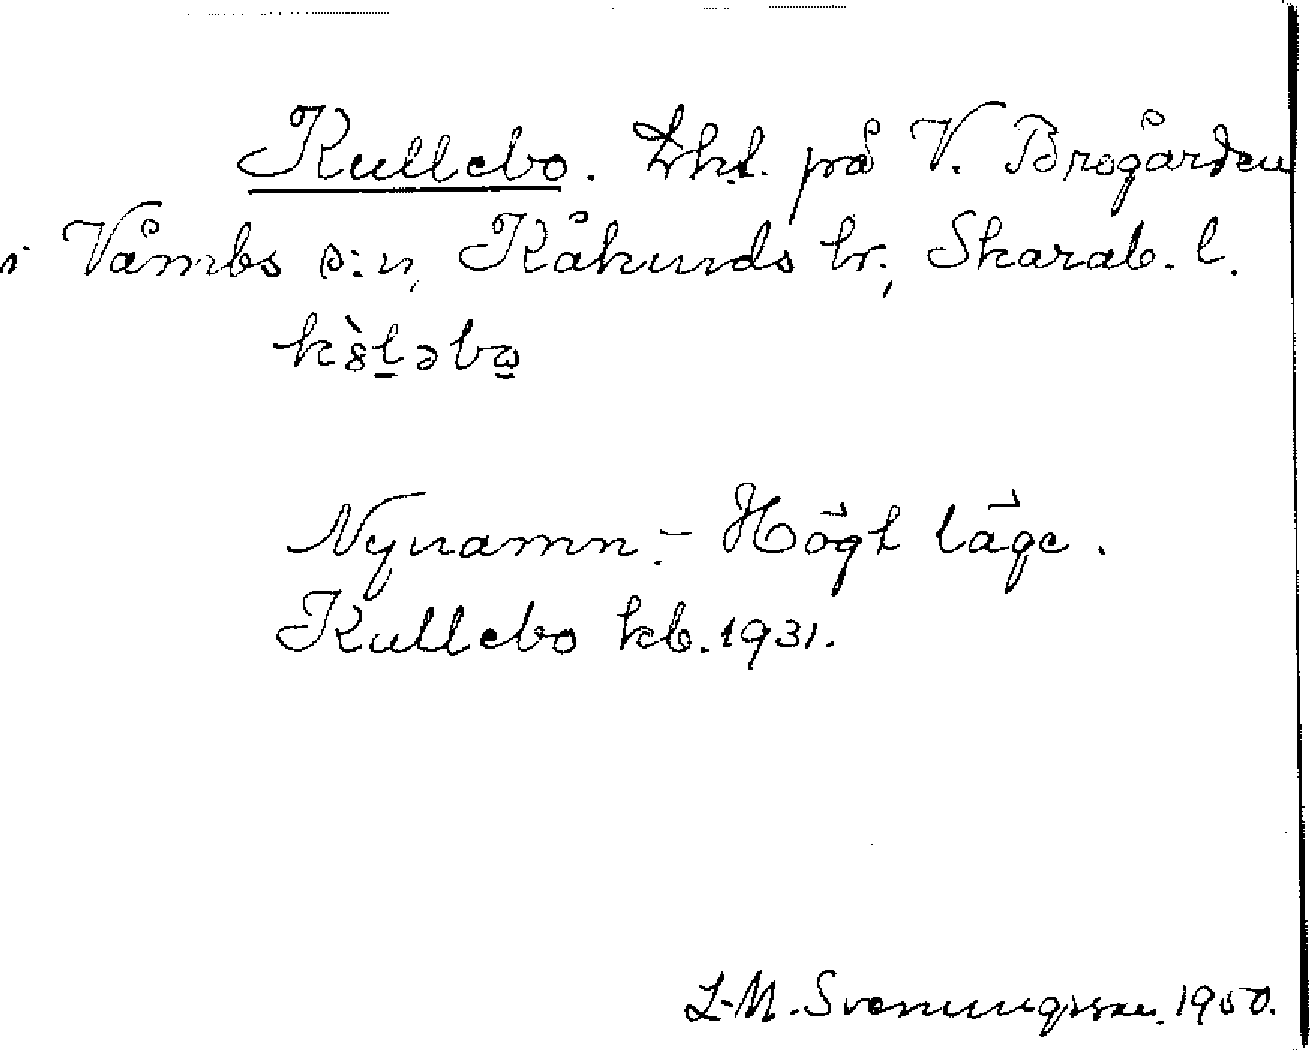 Kullebo. Lht. på V. Brogården
i Våmbs s:n, Kåkinds hr., Skarab. l.
kògləbω

Nynamn. – Högt läge.
Kullebo kb. 1931.
L-M. Svenungsson. 1950.